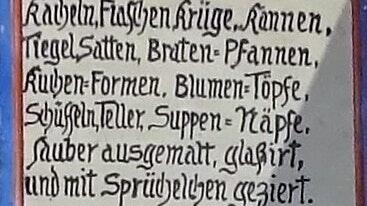 Kacheln, Flaschen Krüge, Kannen,
Tiegel, Satten, Braten=Pfannen,
Kuchen=Formen, Blumen=Töpfe,
Schüßeln, Teller, Suppen=Näpfe.
Sauber ausgemalt, glaßirt,
und mit Sprüchelchen geziert.